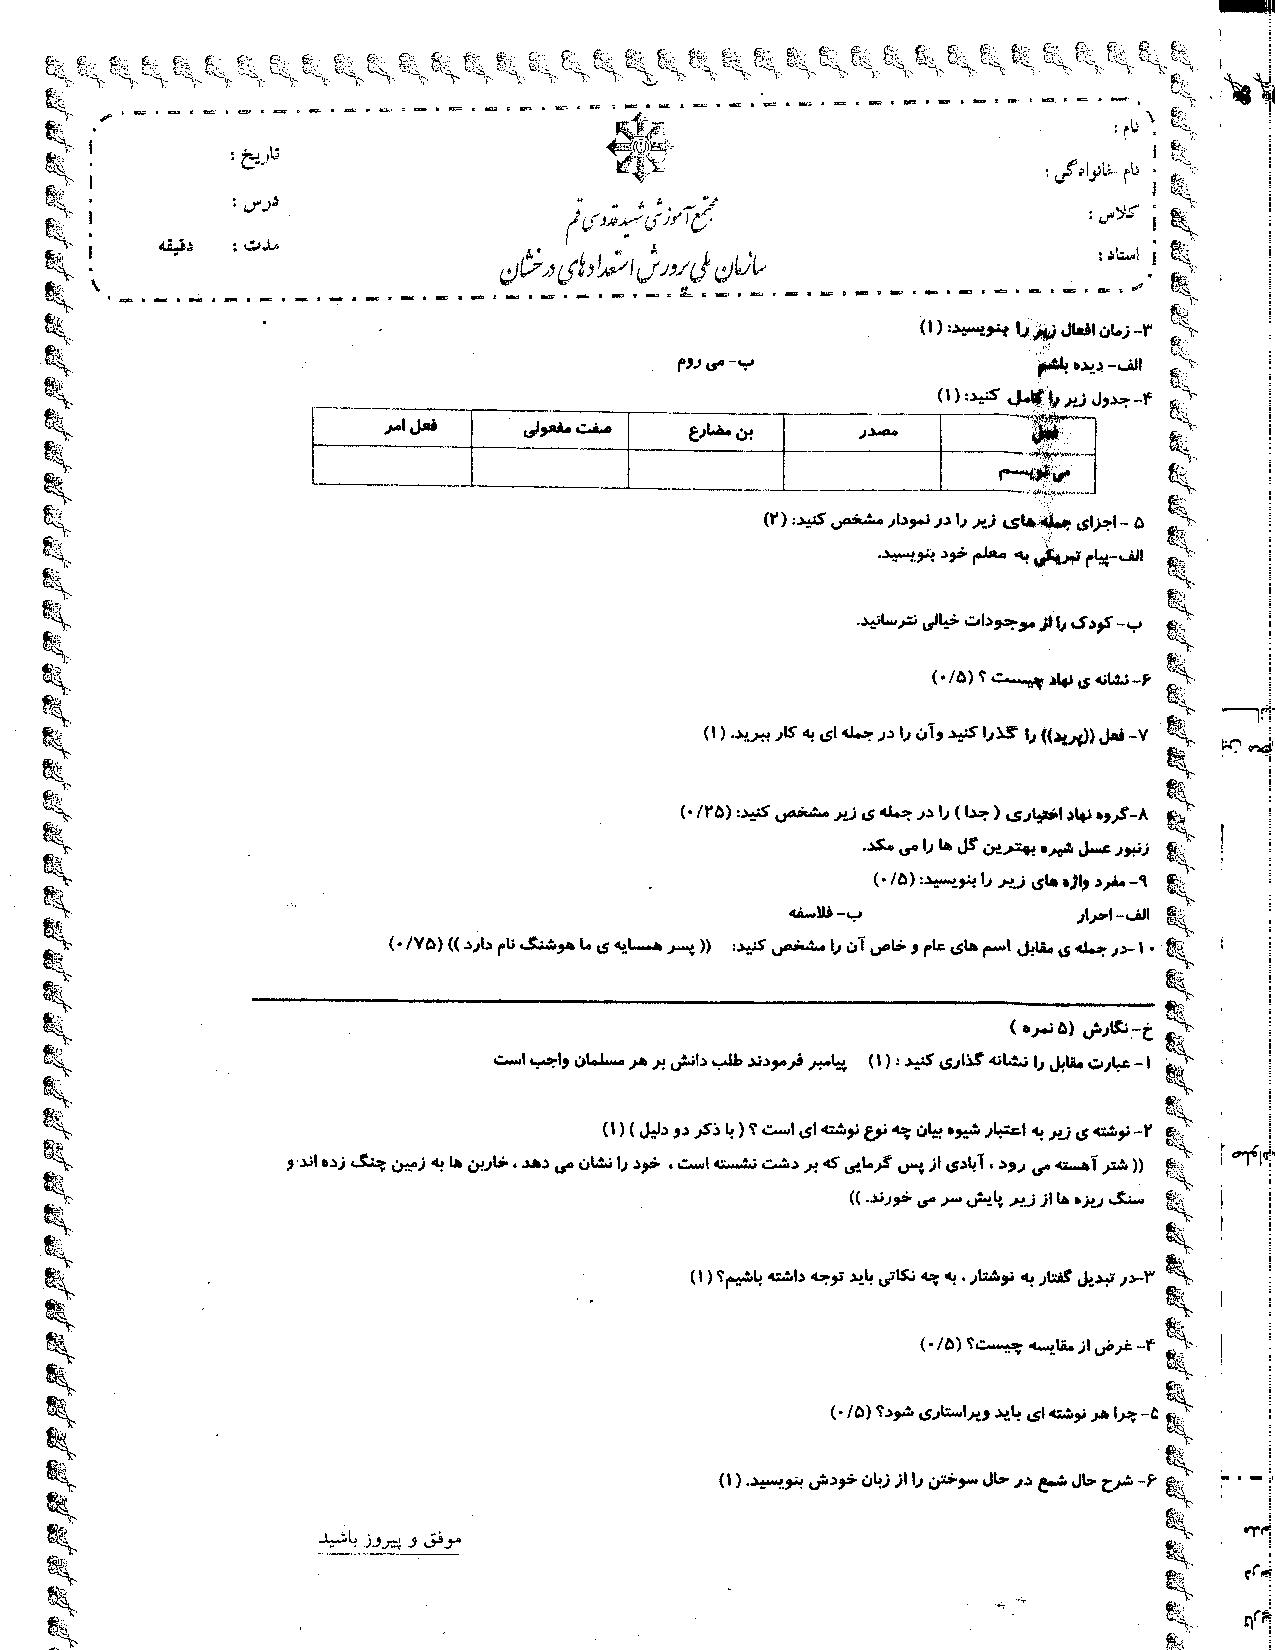 نام :
نام خانوادگی :
کلاس :
استاد :
مجتمع آموزشی شهید قدوسی قم
سازمان ملی پرورش استعدادهای درخشان
تاریخ :
درس :
مدت : دقیقه
۳- زمان افعال زیر را بنویسید: (۱)
الف- دیده باشم ب- می روم
۴- جدول زیر را کامل کنید: (۱)
فعل مصدر بن مضارع صفت مفعولی فعل امر
می نویسم
۵ - اجزای جمله های زیر را در نمودار مشخص کنید: (۲)
الف-پیام تبریکی به معلم خود بنویسید.
ب- کودک را از موجودات خیالی نترسانید.
۶- نشانه ی نهاد چیست ؟ (۰/۵)
۷- فعل ((پرید)) را گذرا کنید وآن را در جمله ای به کار ببرید. (۱)
۸-گروه نهاد اختیاری ( جدا ) را در جمله ی زیر مشخص کنید: (۰/۲۵)
زنبور عسل شیره بهترین گل ها را می مکد.
۹- مفرد واژه های زیر را بنویسید: (۰/۵)
الف- احرار ب- فلاسفه
۱۰-در جمله ی مقابل اسم های عام و خاص آن را مشخص کنید: (( پسر همسایه ی ما هوشنگ نام دارد )) (۰/۷۵)
خ- نگارش (۵ نمره )
۱- عبارت مقابل را نشانه گذاری کنید : (۱) پیامبر فرمودند طلب دانش بر هر مسلمان واجب است
۲- نوشته ی زیر به اعتبار شیوه بیان چه نوع نوشته ای است ؟ ( با ذکر دو دلیل ) (۱)
(( شتر آهسته می رود ، آبادی از پس گرمایی که بر دشت نشسته است ، خود را نشان می دهد ، خاربن ها به زمین چنگ زده اند و
سنگ ریزه ها از زیر پایش سر می خورند. ))
۳-در تبدیل گفتار به نوشتار ، به چه نکاتی باید توجه داشته باشیم؟ (۱)
۴- غرض از مقایسه چیست؟ (۰/۵)
۵- چرا هر نوشته ای باید ویراستاری شود؟ (۰/۵)
۶- شرح حال شمع در حال سوختن را از زبان خودش بنویسید. (۱)
موفق و پیروز باشید